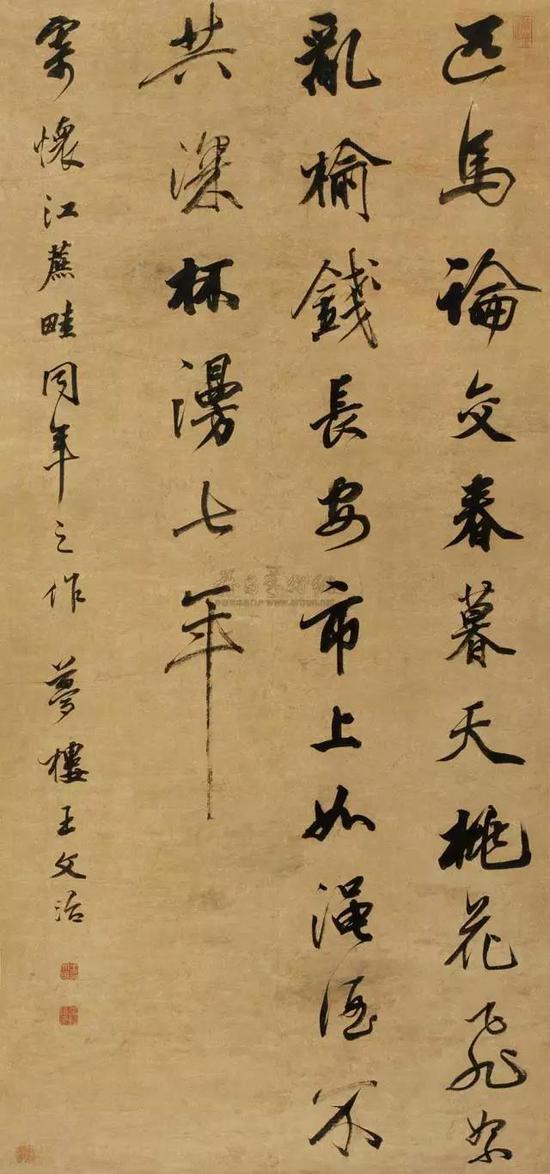 匹馬論交春暮天桃花飛絮
亂榆錢長安市上如澠酒不
共深杯漫七年
寄懷江蔗畦同年之作 夢樓王文治